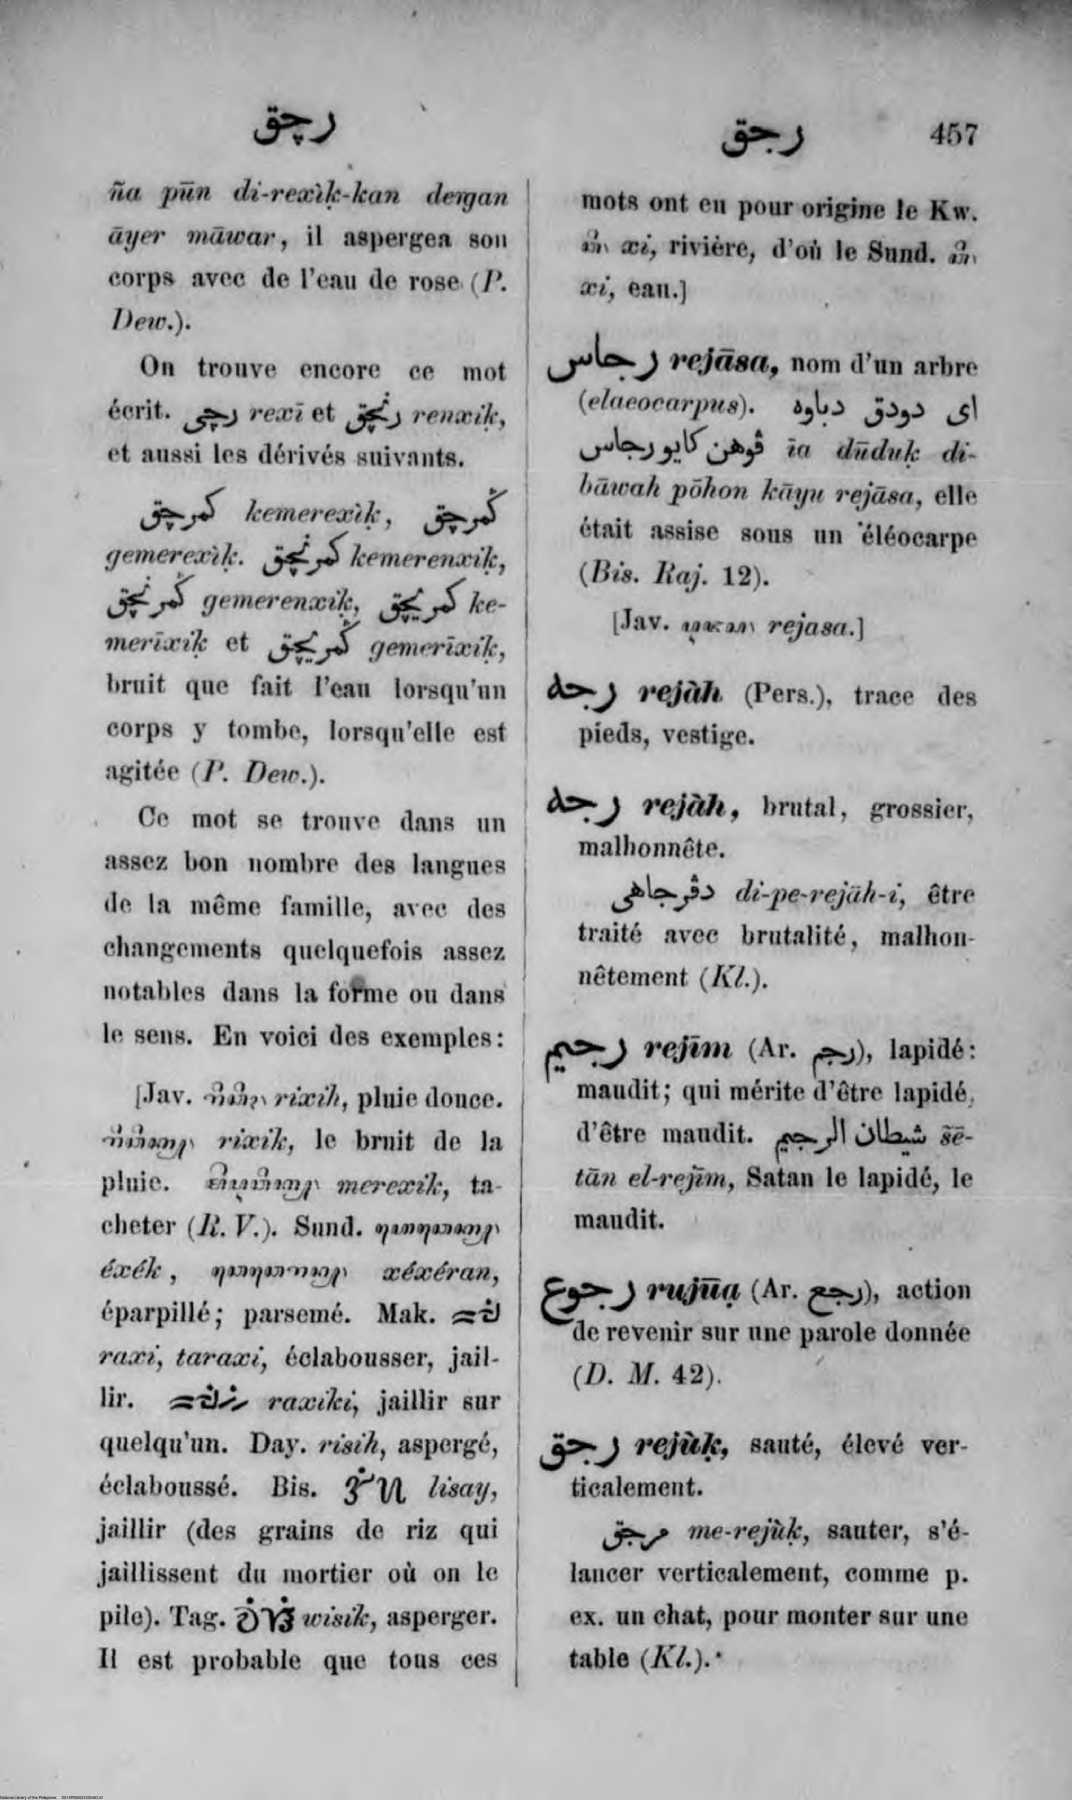 رچق
رجق 457
ña pūn di-rexìḳ-kan deṅgan
āyer māwar, il aspergea son
corps avec de l'eau de rose (P.
Dew.).
On trouve encore ce mot
écrit. رچي rexī et رنچق renxiḳ,
et aussi les dérivés suivants.
كمرچق kemerexìḳ, ݢمرچق
gemerexìḳ. كمرنچق kemerenxiḳ,
ݢمرنچق gemerenxiḳ, كمريچق ke-
merīxiḳ et ݢمريچق gemerīxiḳ,
bruit que fait l'eau lorsqu'un
corps y tombe, lorsqu'elle est
agitée (P. Dew.).
Ce mot se trouve dans un
assez bon nombre des langues
de la même famille, avec des
changements quelquefois assez
notables dans la forme ou dans
le sens. En voici des exemples:
[Jav. rixih, pluie douce.
rixik, le bruit de la
pluie. merexik, ta-
cheter (R. V.). Sund.
éxék, xéxéran,
éparpillé; parsemé. Mak.
raxi, taraxi, éclabousser, jail-
lir. raxiki, jaillir sur
quelqu'un. Day. risih, aspergé,
éclaboussé. Bis. lisay,
jaillir (des grains de riz qui
jaillissent du mortier où on le
pile). Tag. wisik, asperger.
Il est probable que tous ces
mots ont eu pour origine le Kw.
xi, rivière, d'où le Sund.
xi, eau.]
رجاس rejāsa, nom d'un arbre
(elaeocarpus). اى دودق دباوه
ڤوهن كايو رجاس īa dūduḳ di-
bāwah pōhon kāyu rejāsa, elle
était assise sous un éléocarpe
(Bis. Raj. 12).
[Jav. rejasa.]
رجه rejàh (Pers.), trace des
pieds, vestige.
رجه rejàh, brutal, grossier,
malhonnête.
دڤرجاهي di-pe-rejāh-i, être
traité avec brutalité, malhon-
nêtement (Kl.).
رجيم rejīm (Ar. رجم), lapidé:
maudit; qui mérite d'être lapidé,
d'être maudit. شيطان الرجيم šē-
tān el-rejīm, Satan le lapidé, le
maudit.
رجوع rujūạ (Ar. رجع), action
de revenir sur une parole donnée
(D. M. 42).
رجق rejùḳ, sauté, élevé ver-
ticalement.
مرجق me-rejùḳ, sauter, s'é-
lancer verticalement, comme p.
ex. un chat, pour monter sur une
table (Kl.).